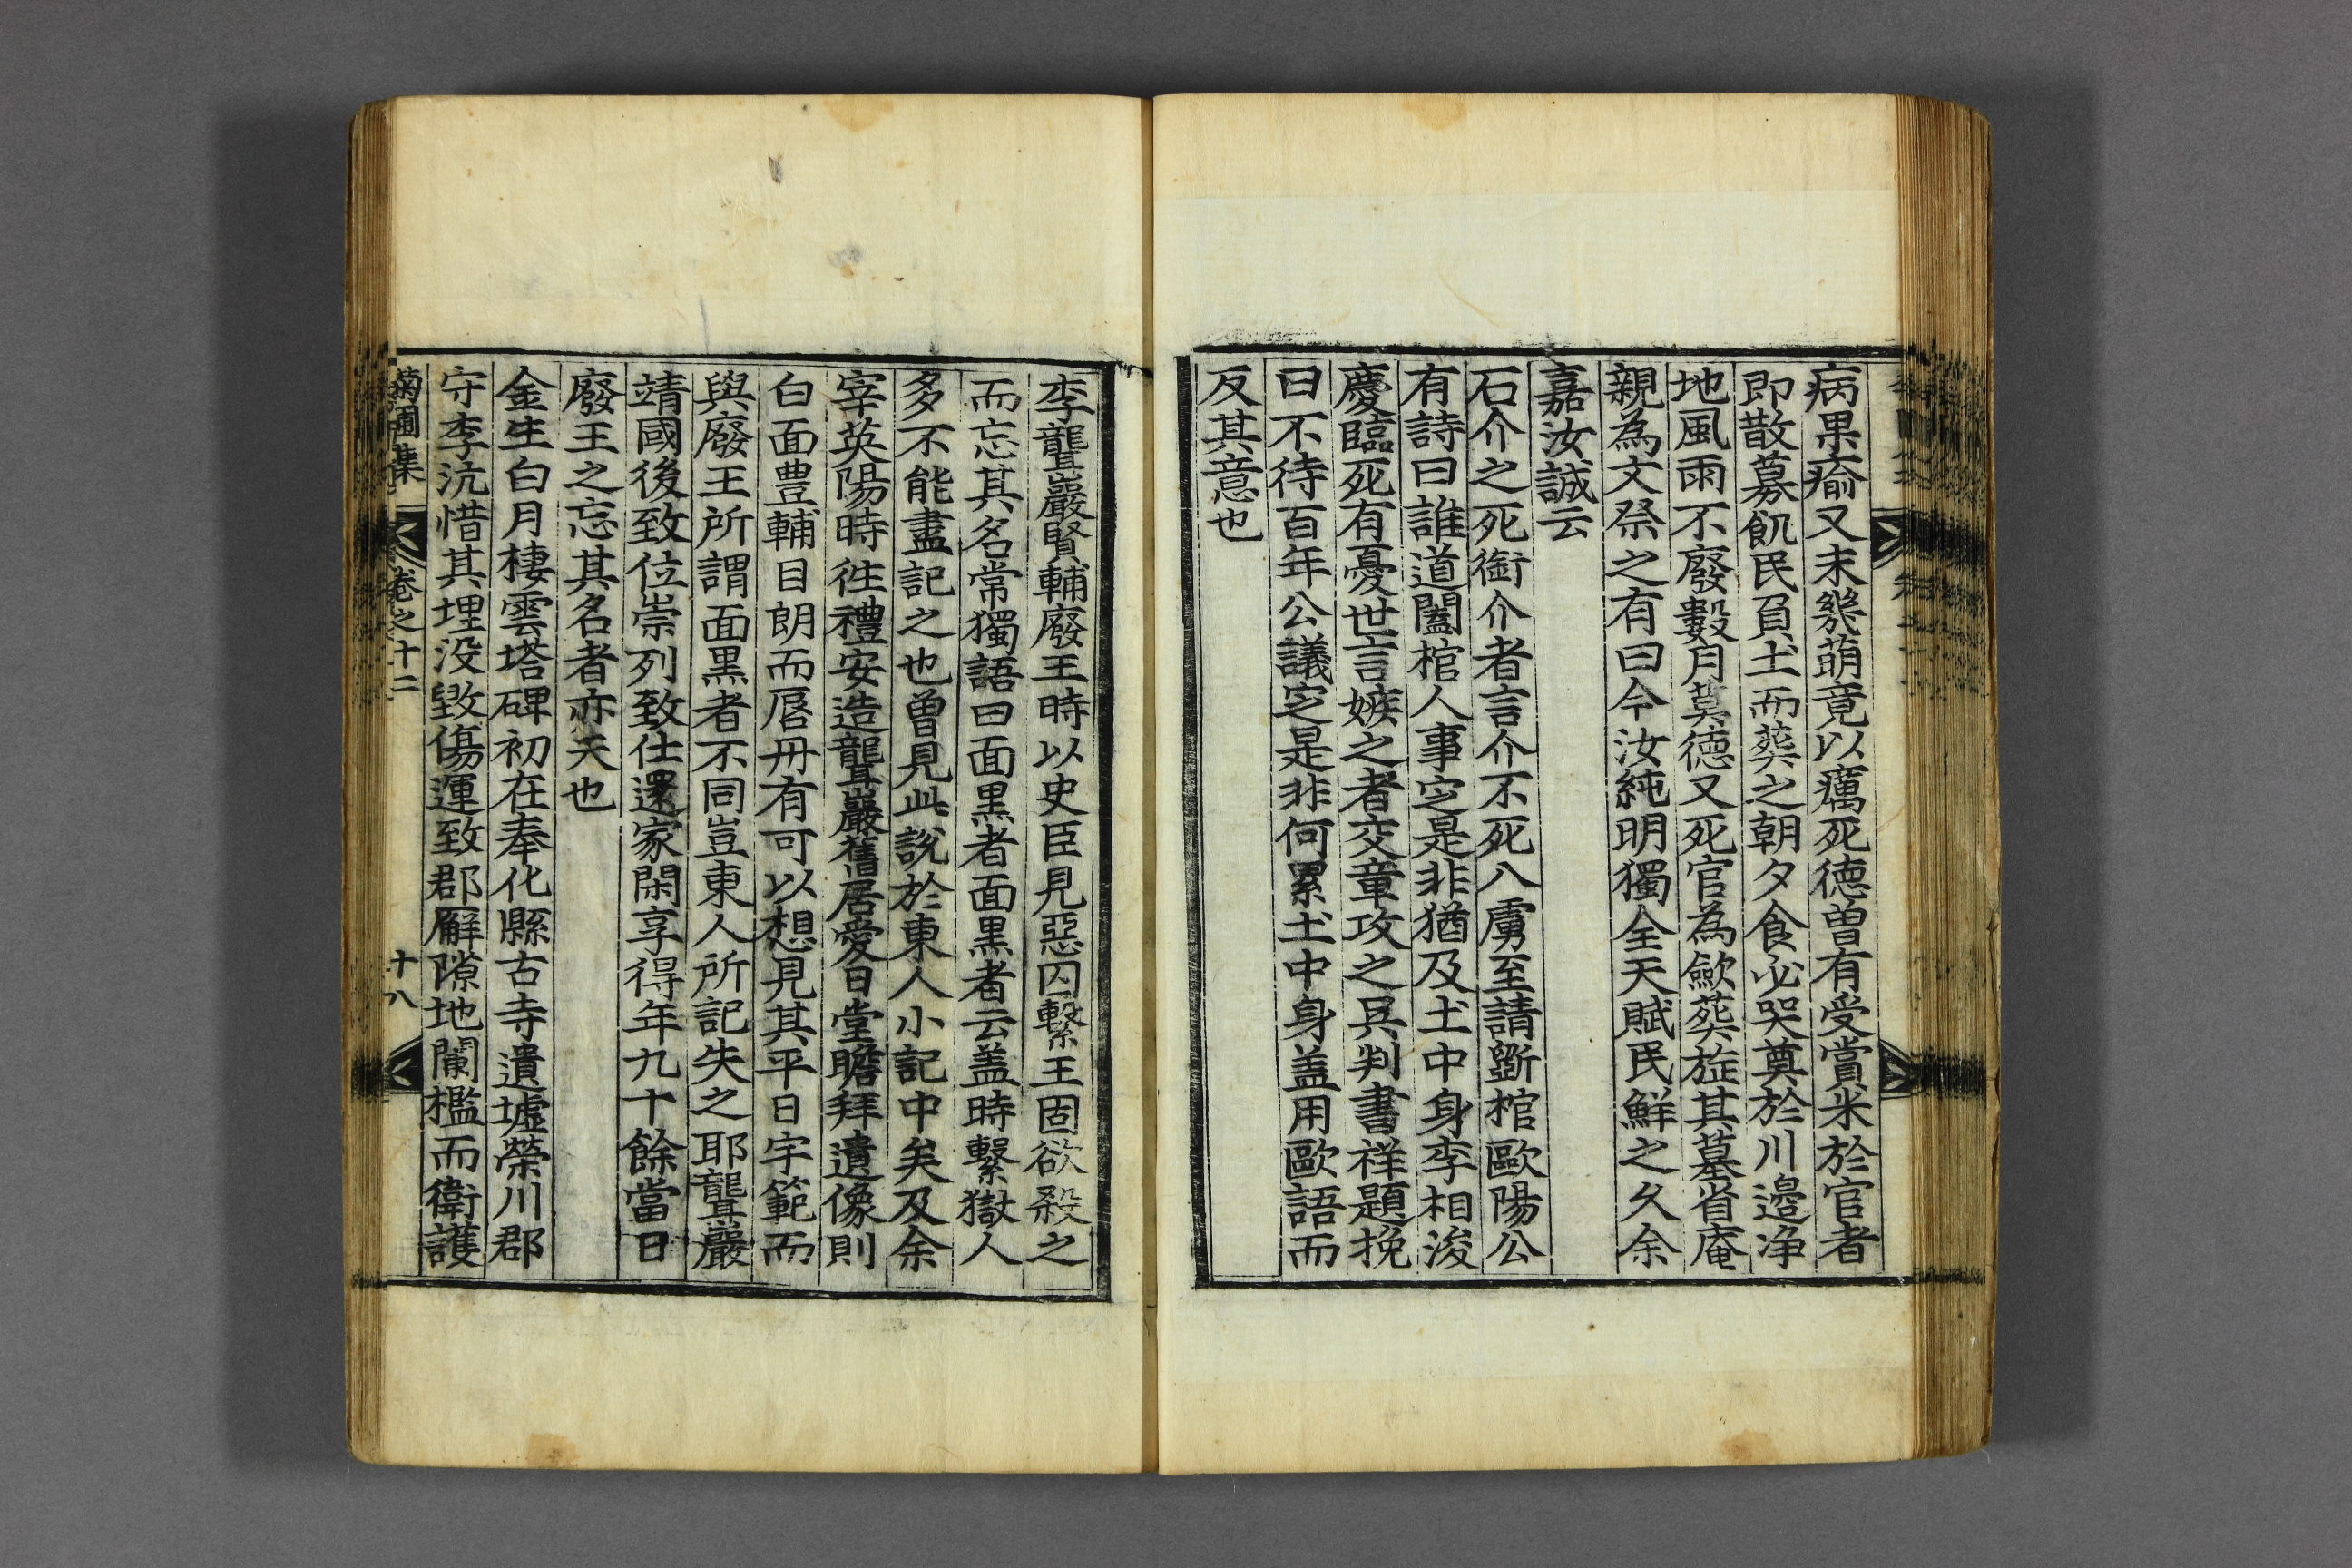 病果瘉又未幾萌竟以癘死德曾有受賞米於官者
即散募飢民負土而葬之朝夕食必哭奠於川邊净
地風雨不廢數月莫德又死官為歛葬旌其墓省庵
親為文祭之有曰今汝純明獨全天賦民鮮之久余
嘉汝誠云
石介之死銜介者言介不死入虜至請斲棺歐陽公
有詩曰誰道闔棺人事定是非猶及土中身李相浚
慶臨死有憂世言嫉之者交章攻之具判書祥題挽
曰不待百年公議定是非何累土中身盖用歐語而
反其意也
李聾巖賢輔廢王時以史臣見惡囚繫王固欲殺之
而忘其名常獨語曰面黒者面黒者云盖時繫獄人
多不能盡記之也曾見此說於東人小記中矣及余
宰英陽時徃禮安造聾巖舊居愛日堂瞻拜遺像則
白面豊輔目朗而唇丹有可以想見其平日宇範而
與廢王所謂面黒者不同豈東人所記失之耶聾巖
靖國後致位崇列致仕還家閑享得年九十餘當日
廢王之忘其名者亦天也
金生白月棲雲塔碑初在奉化縣古寺遺墟榮川郡
守李沆惜其埋没毀傷運致郡廨隙地闌檻而衛護
菊圃集 卷之十二 十八